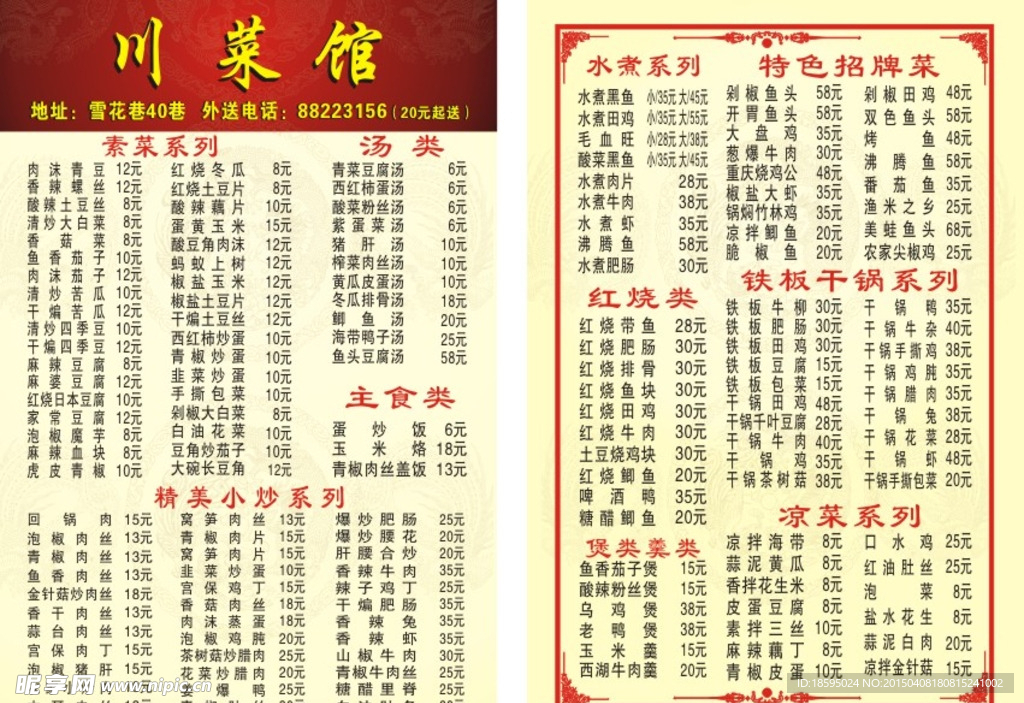 川菜馆
地址：雪花巷40巷 外送电话：88223156（20元起送）
素菜系列
肉沫青豆 12元
香辣螺丝 12元
酸辣土豆丝 8元
清炒大白菜 8元
香菇菜 8元
鱼香茄子 10元
肉沫茄子 12元
清炒苦瓜 10元
干煸苦瓜 12元
清炒四季豆 10元
干煸四季豆 12元
麻辣豆腐 8元
麻婆豆腐 12元
红烧日本豆腐 10元
家常豆腐 12元
泡椒魔芋 8元
麻辣血块 8元
虎皮青椒 10元
红烧冬瓜 8元
红烧土豆片 8元
酸辣藕片 10元
蛋黄玉米 15元
酸豆角肉沫 12元
蚂蚁上树 12元
椒盐玉米 12元
椒盐土豆片 12元
干煸土豆丝 12元
西红柿炒蛋 10元
青椒炒蛋 10元
韭菜炒蛋 10元
手撕包菜 10元
剁椒大白菜 8元
白油花菜 10元
豆角炒茄子 10元
大碗长豆角 12元
汤类
青菜豆腐汤 6元
西红柿蛋汤 6元
酸菜粉丝汤 6元
紫蛋菜汤 6元
猪肝汤 10元
榨菜肉丝汤 10元
黄瓜皮蛋汤 10元
冬瓜排骨汤 18元
鲫鱼汤 20元
海带鸭子汤 25元
鱼头豆腐汤 58元
主食类
蛋炒饭 6元
玉米烙 18元
青椒肉丝盖饭 13元
精美小炒系列
回锅肉 15元
泡椒肉丝 13元
青椒肉丝 13元
鱼香肉丝 13元
金针菇炒肉丝 18元
香干肉丝 13元
蒜台肉丝 13元
宫保肉丁 15元
泡椒猪肝 15元
窝笋肉丝 13元
青椒肉片 15元
窝笋肉片 15元
韭菜炒蛋 10元
宫保鸡丁 15元
香菇肉丝 18元
肉沫蒸蛋 18元
泡椒鸡肫 20元
茶树菇炒腊肉 25元
花菜炒腊肉 20元
姜爆鸭 25元
爆炒肥肠 25元
爆炒腰花 20元
肝腰合炒 20元
香辣牛肉 35元
辣子鸡丁 25元
干煸肥肠 35元
香辣兔 35元
香辣虾 35元
山椒牛肉 30元
青椒牛肉丝 25元
糖醋里脊 25元
水煮系列
水煮黑鱼 小/35元 大/45元
水煮田鸡 小/35元 大/55元
毛血旺 小/28元 大/38元
酸菜黑鱼 小/35元 大/45元
水煮肉片 28元
水煮牛肉 38元
水煮虾 35元
沸腾鱼 58元
水煮肥肠 30元
红烧类
红烧带鱼 28元
红烧肥肠 30元
红烧排骨 30元
红烧鱼块 30元
红烧田鸡 30元
红烧牛肉 30元
土豆烧鸡块 30元
红烧鲫鱼 20元
啤酒鸭 35元
糖醋鲫鱼 20元
煲类羹类
鱼香茄子煲 15元
酸辣粉丝煲 15元
乌鸡煲 38元
老鸭煲 38元
玉米羹 15元
西湖牛肉羹 20元
特色招牌菜
剁椒鱼头 58元
开胃鱼头 58元
大盘鸡 35元
葱爆牛肉 30元
重庆烧鸡公 48元
椒盐大虾 35元
锅焖竹林鸡 35元
凉拌鲫鱼 20元
脆椒鱼 20元
剁椒田鸡 48元
双色鱼头 58元
烤鱼 48元
沸腾鱼 58元
番茄鱼 35元
渔米之乡 25元
美蛙鱼头 68元
农家尖椒鸡 25元
铁板干锅系列
铁板牛柳 30元
铁板肥肠 30元
铁板田鸡 30元
铁板豆腐 15元
铁板包菜 15元
干锅田鸡 48元
干锅千叶豆腐 28元
干锅牛肉 40元
干锅鸡 35元
干锅茶树菇 38元
干锅鸭 35元
干锅牛杂 40元
干锅手撕鸡 38元
干锅鸡肫 35元
干锅腊肉 35元
干锅兔 38元
干锅花菜 28元
干锅虾 48元
干锅手撕包菜 20元
凉菜系列
凉拌海带 8元
蒜泥黄瓜 8元
香拌花生米 8元
皮蛋豆腐 8元
素拌三丝 10元
麻辣藕丁 8元
青椒皮蛋 10元
口水鸡 25元
红油肚丝 25元
泡菜 8元
盐水花生 8元
蒜泥白肉 20元
凉拌金针菇 15元
昵享网 www.nipic.cn
ID:18595024 NO:20150408180815241002